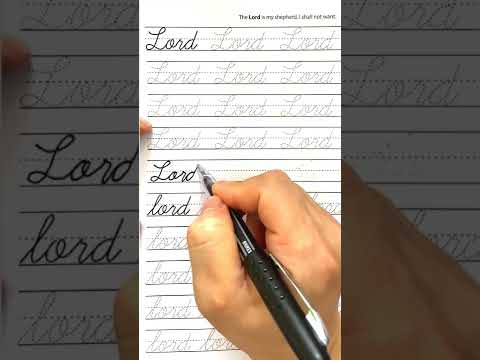 The Lord is my shepherd, I shall not want.
Lord Lord Lord
Lord Lord Lord
Lord Lord Lord
Lord Lord Lord
Lord
lord
lord
lord
lord
lord lord